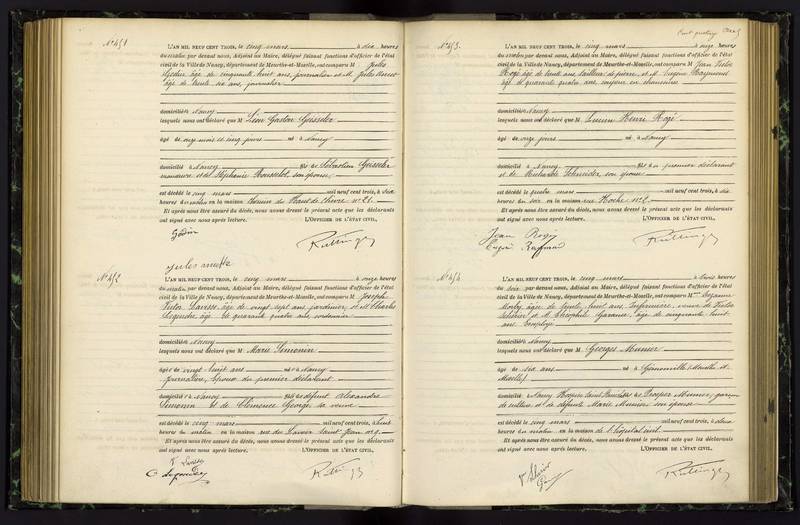 N° 451
L'AN MIL NEUF CENT TROIS, le cinq mars à dix heures
du matin par devant nous, Adjoint au Maire, délégué faisant fonctions d'officier de l'état
civil de la Ville de Nancy, département de Meurthe-et-Moselle, ont comparu M Jules
âgé de cinquante huit ans, journalier et M. Jules
âgé de trente six ans, journalier
domiciliés à Nancy
lesquels nous ont déclaré que M Léon Gaston Geisseler
âgé de onze mois et cinq jours né à Nancy
domicilié à Nancy fils de Sébastien Geisseler
manœuvre et de Stéphanie Rousselot, son épouse
est décédé le cinq mars mil neuf cent trois, à six
heures du matin en la maison Chemin du Haut de Chèvre n° 21.
Et après nous être assuré du décès, nous avons dressé le présent acte que les déclarants
ont signé avec nous après lecture. L'OFFICIER DE L'ÉTAT CIVIL,
N° 452
L'AN MIL NEUF CENT TROIS, le cinq mars à onze heures
du matin, par devant nous, Adjoint au Maire, délégué faisant fonctions d'officier de l'état
civil de la Ville de Nancy, département de Meurthe-et-Moselle, ont comparu M Joseph
Victor âgé de vingt sept ans, jardinier, et M Charles
âgé de quarante quatre ans, cordonnier
domiciliés à Nancy
lesquels nous ont déclaré que M Marie Simonin
âgée de vingt huit ans née à Nancy
journalière, épouse du premier déclarant
domiciliée à Nancy fille de défunt Alexandre
Simonin et de Clémence George sa veuve
est décédée le cinq mars mil neuf cent trois, à
heures du matin en la maison rue du Saint Jean n° 9
Et après nous être assuré du décès, nous avons dressé le présent acte que les déclarants
ont signé avec nous après lecture. L'OFFICIER DE L'ÉTAT CIVIL,
N° 453
L'AN MIL NEUF CENT TROIS, le cinq mars à onze heures
du matin par devant nous, Adjoint au Maire, délégué faisant fonctions d'officier de l'état
civil de la Ville de Nancy, département de Meurthe-et-Moselle, ont comparu M Jean Victor
Rogé âgé de trente ans, tailleur de pierre, et M. Eugène Raymond
âgé de quarante quatre ans, coupeur en chaussures
domiciliés à Nancy
lesquels nous ont déclaré que M Lucien Henri Rogé
âgé de onze jours né à Nancy
domicilié à Nancy fils du premier déclarant
et de Schneider, son épouse
est décédé le quatre mars mil neuf cent trois, à dix
heures du soir en la maison rue Hoche n° 2
Et après nous être assuré du décès, nous avons dressé le présent acte que les déclarants
ont signé avec nous après lecture. L'OFFICIER DE L'ÉTAT CIVIL,
Jean Rogé
N° 454
L'AN MIL NEUF CENT TROIS, le cinq mars à trois heures
du soir par devant nous, Adjoint au Maire, délégué faisant fonctions d'officier de l'état
civil de la Ville de Nancy, département de Meurthe-et-Moselle, ont comparu Mme Suzanne
âgée de trente huit ans, infirmière, veuve de Victor
et M. Théophile Garnier, âgé de cinquante huit
ans employé
domiciliés à Nancy
lesquels nous ont déclaré que M Georges Munier
âgé de dix ans né à (Meurthe et
Moselle)
domicilié à Nancy fils de Prosper Munier, garçon
de culture et de défunte Marie Munier, son épouse
est décédé le cinq mars mil neuf cent trois, à deux
heures du matin en la maison de l'hôpital civil.
Et après nous être assuré du décès, nous avons dressé le présent acte que les déclarants
ont signé avec nous après lecture. L'OFFICIER DE L'ÉTAT CIVIL,